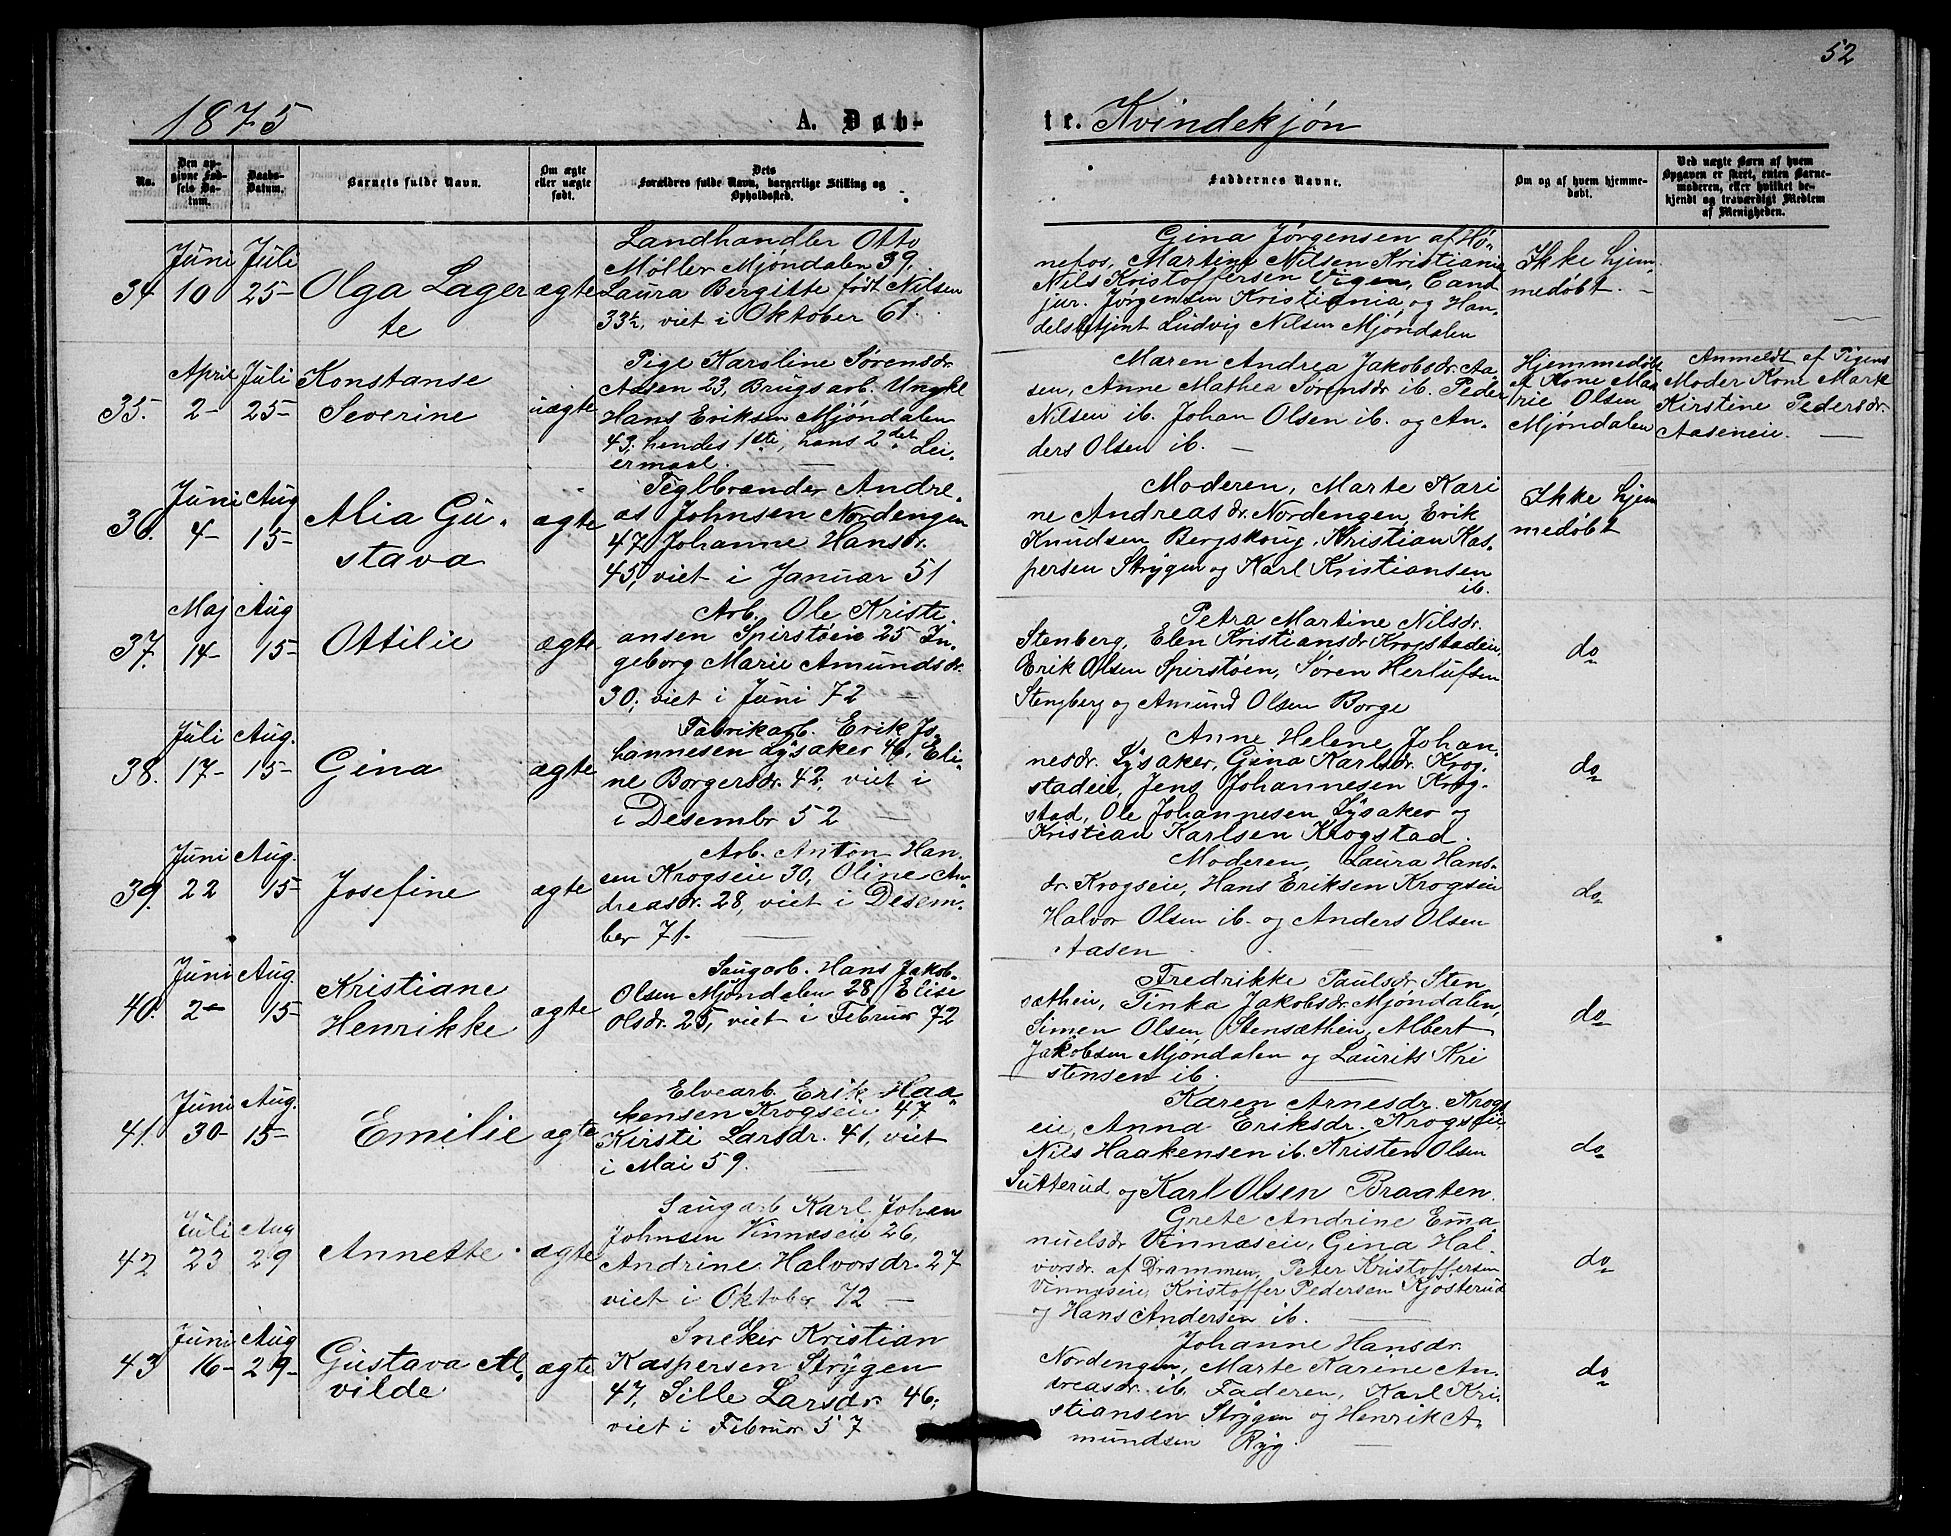 52
1875 A. Døb-
te. Kvindekjøn
No.
Den op-
givne Fød-
sels Da-
tum.
Daabs-
Datum.
Barnets fulde Navn.
Om ægte
eller uægte
født.
Dets
Forældres fulde Navn, borgerlige Stilling og
Opholdssted.
Faddernes Navne.
Om og af hvem hjemme-
døbt.
Ved uægte Børn af hvem
Opgaven er skeet, enten Barne-
moderen, eller hvilket be-
kjendt og troværdigt Medlem
af Menigheden.
34 Juni 10 Juli 25- Olga Lager
te
ægte
Landhandler Otto
Møller Mjøndalen 39,
Laura Bergitte født Nilsen
33½, viet i Oktober 61.
Gina Jørgensen af Hø-
nefos, Martine Nilsen Kristiania
Nils Kristoffersen Vigen, Cand
jur. Jørgensen Kristiania, og Han-
delsbetjent Ludvig Nilsen Mjøndalen
Ikke hjem-
medøbt. -
35. April 2- Juli 25- Konstanse
Severine
uægte
Pige Karoline Sørensdr.
Aasen 23, Brugsarb. Ungkl
Hans Eriksen Mjøndalen
43; hendes 1ste, hans 2det Lei-
ermaal. -
Maren Andrea Jakobsdr. Aa-
sen, Anne Mathea Sørensdr ib. Peder
Nilsen ib. Johan Olsen ib. og An-
ders Olsen ib. -
Hjemmedøbt
af Kone Ma-
rie Olsen
Mjøndalen
Anmeldt af Pigens
Moder Kone Marte
Kirstine Pedersdr.
Aaseneie. -
36. Juni 4- Aug 15- Alia Gu-
stava
ægte
Teglbrænder Andre-
as Johnsen Nordengen
47, Johanne Hansdr.
45, viet i Januar 51
Moderen, Marte Kari
ne Andreasdr. Nordengen, Erik
Knudsen Bergskoug, Kristian Kas-
persen Strygen og Karl Kristiansen
ib.
Ikke hjem
medøbt
37. Maj 14- Aug 15- Ottilie
ægte
Arb. Ole Kristi-
ansen Spirstøen 25 In-
geborg Marie Amundsdr.
30; viet i Juni 72 -
Petra Martine Nilsdr.
Stenberg, Elen Kristiansdr Krogstadeie,
Erik Olsen Spirstøen, Søren Herlufsen
Stengberg og Amund Olsen Borge
do
38. Juli 17- Aug. 15- Gina
ægte
Fabrikarb. Erik Jo-
hannesen Lysaker 46, Eli-
ne Borgersdr. 42, viet i
i Desembr 52 -
Anne Helene Johan-
nesdr. Lysaker, Gina Karlsdr. Krog-
stadeie, Jens Johannesen Krog-
stad, Ole Johannesen Lysaker og
Kristian Karlsen Krogstad.
do
39. Juni 22 Aug. 15- Josefine
ægte
Arb. Anton Han-
sen Krogseie 30, Oline An-
dreasdr. 28, viet i Desem-
ber 71. -
Moderen, Laura Hans-
dr. Krogseie, Hans Eriksen Krogseie
Halvor Olsen ib. og Anders Olsen
Aasen -
do
40. Juni 2- Aug. 15- Kristiane
Henrikke
ægte
Saugarb. Hans Jakob
Olsen Mjøndalen 28, Elise
Olsdr. 25, viet i Februar 72
Fredrikke Paulsdr. Sten
sætheie, Tinka Jakobsdr. Mjøndalen,
Simen Olsen Stensætheie, Albert
Jakobsen Mjøndalen og Laurits Kri
stensen ib.
do
41. Juni 30- Aug. 15- Emilie
ægte
Elvearb. Erik Haa-
kensen Krogseie 47,
Kirsti Larsdr. 41, viet
i Mai 59. -
Karen Arnesdr. Krogs
eie, Anna Eriksdr. Krogseie
Nils Haakensen ib. Kristen Olsen
Sutterud og Karl Olsen Braaten.
do
42 Juli 23 Aug 29 Annette
ægte
Saugarb Karl Johan
Johnsen Vinnæseie 26,
Andrine Halvorsdr. 27
viet i Oktober 72 -
Grete Andrine Ema
nuelsdr Vinnæseie, Gina Hal-
vorsdr. af Drammen, Peter Kristoffersen
Vinnæseie, Kristoffer Pedersen Kjøsterud
og Hans Andersen ib. -
do
43 Juni 16- Aug 29- Gustava Al-
vilde
ægte
Sneker Kristian
Kaspersen Strygen
47, Sille Larsdr. 46;
viet i Februar 57
Johanne Hansdr.
Nordengen, Marte Karine An-
dreasdr. ib. Faderen, Karl Kri-
stiansen Strygen og Henrik A-
mundsen Ryg. -
do